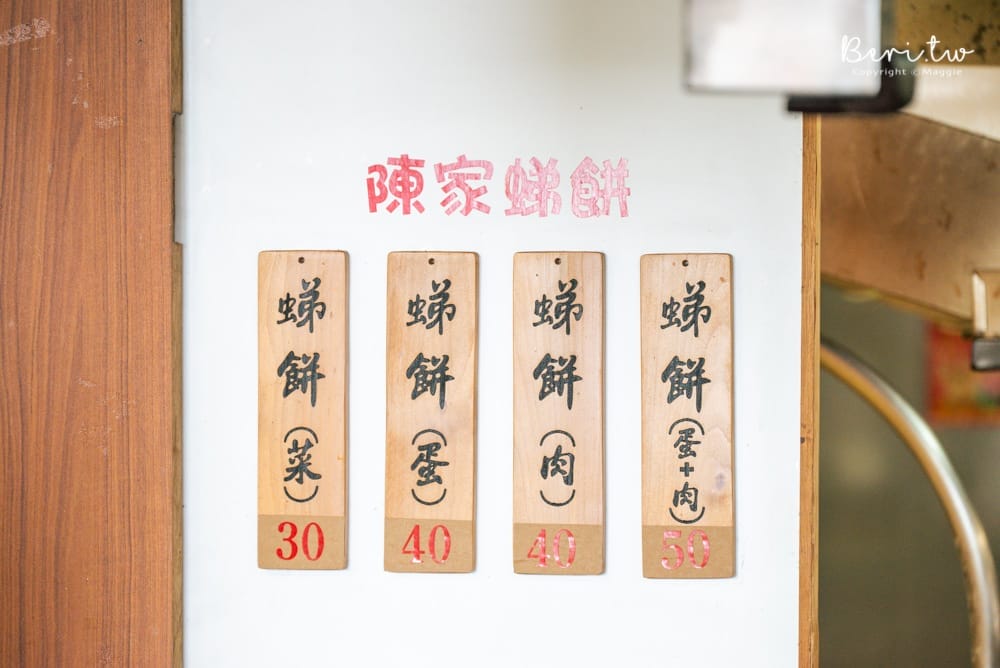 Beri.tw
Copyright ©Maggie
陳家蛦餅
蛦餅(菜)
30
蛦餅(蛋)
40
蛦餅(肉)
40
蛦餅(蛋+肉)
50